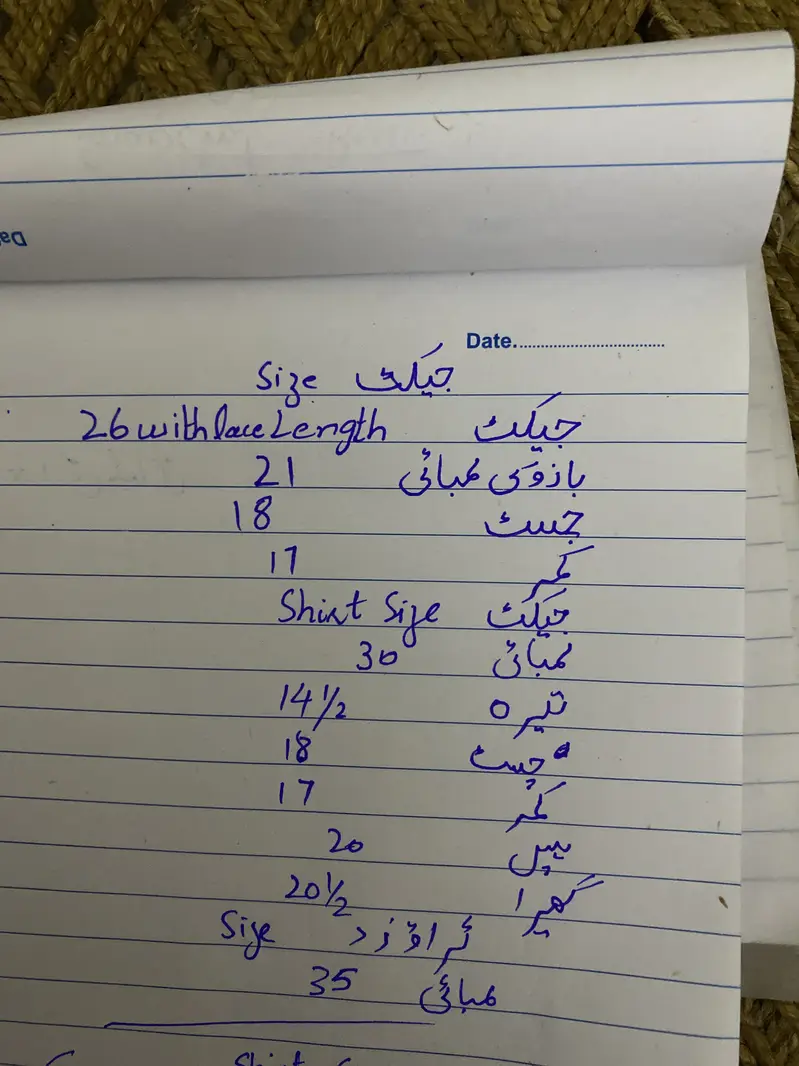 Date
جیکٹ Size
جیکٹ 26 with lace Length
بازو کی لمبائی 21
چسٹ 18
کمر 17
جیکٹ Shirt Size
لمبائی 30
تیرہ 14 1/2
چسٹ 18
کمر 17
ہپ 20
گھیرا 20 1/2
ٹراؤزر Size
لمبائی 35